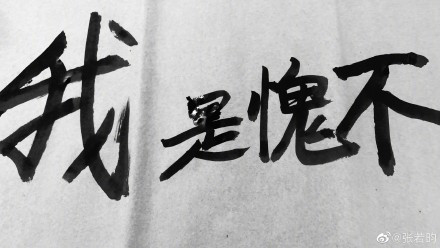 不愧是我
@张若昀